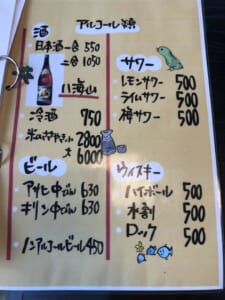 アルコール類
酒
日本酒一合 550
二合 1050
八海山
冷酒 750
米のささやき小 2800
大 6000
ビール
アサヒ中ビン 630
キリン中ビン 630
ノンアルコールビール 450
サワー
レモンサワー 500
ライムサワー 500
梅サワー 500
ウィスキー
ハイボール 500
水割 500
ロック 500